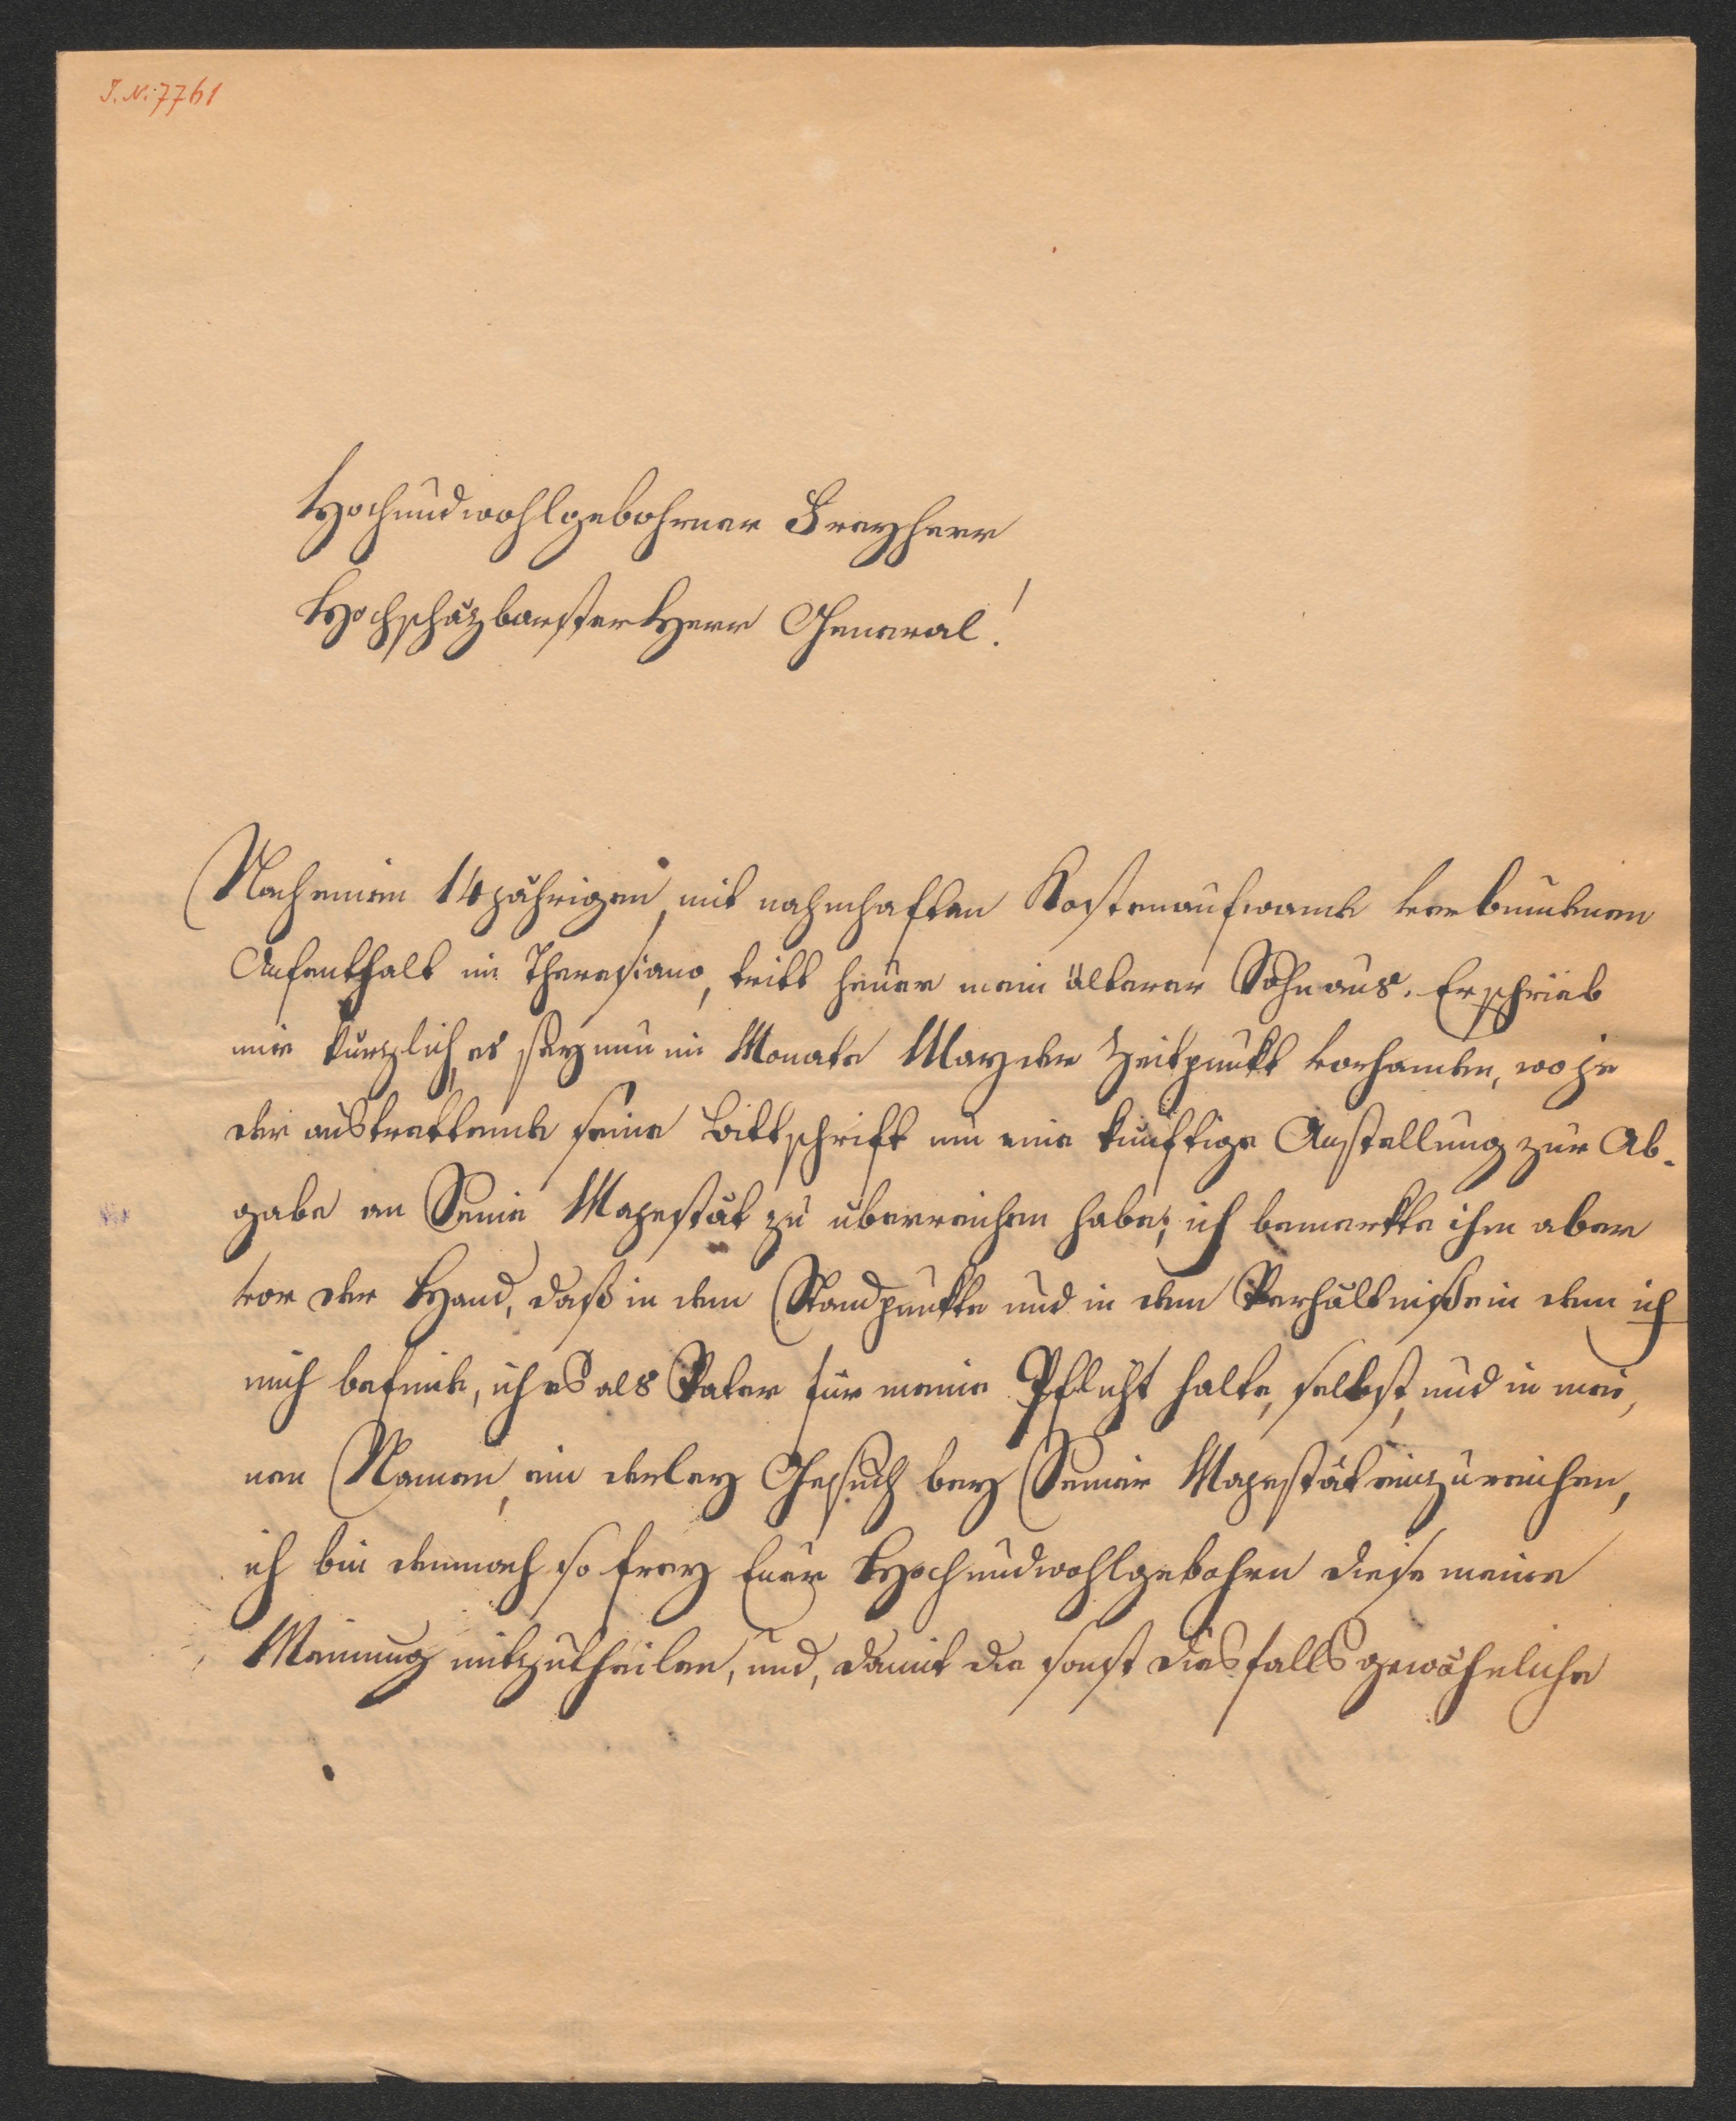 J. N: 7761
Hochundwohlgebohrner Freyherr
Hochschäzbarster Herr General!
Nach einem 14 jährigen, mit nahmhaften Kostenaufwande verbundenen
Aufenthalt im Theresiano, tritt heuer mein älterer Sohn aus. Er schrieb
mir kürzlich, es sey nun im Monate May der Zeitpunkt vorhanden, wo je
der austrettende seine Bittschrift um eine künftige Anstellung zur Ab-
gabe an Seine Majestät zu überreichen habe; ich bemerkte ihm aber
vor der Hand, daß in dem Standpunkte und in dem Verhältniße in dem ich
mich befinde, ich es als Vater für meine Pflicht halte, selbst, und in mei,
nen Namen, ein derley Gesuch bey Seiner Majestät einzureichen,
ich bin demnach so frey Euer Hochundwohlgebohrn diese meine
Meinung mitzutheilen, und, damit die sonst diesfalls gewöhnliche